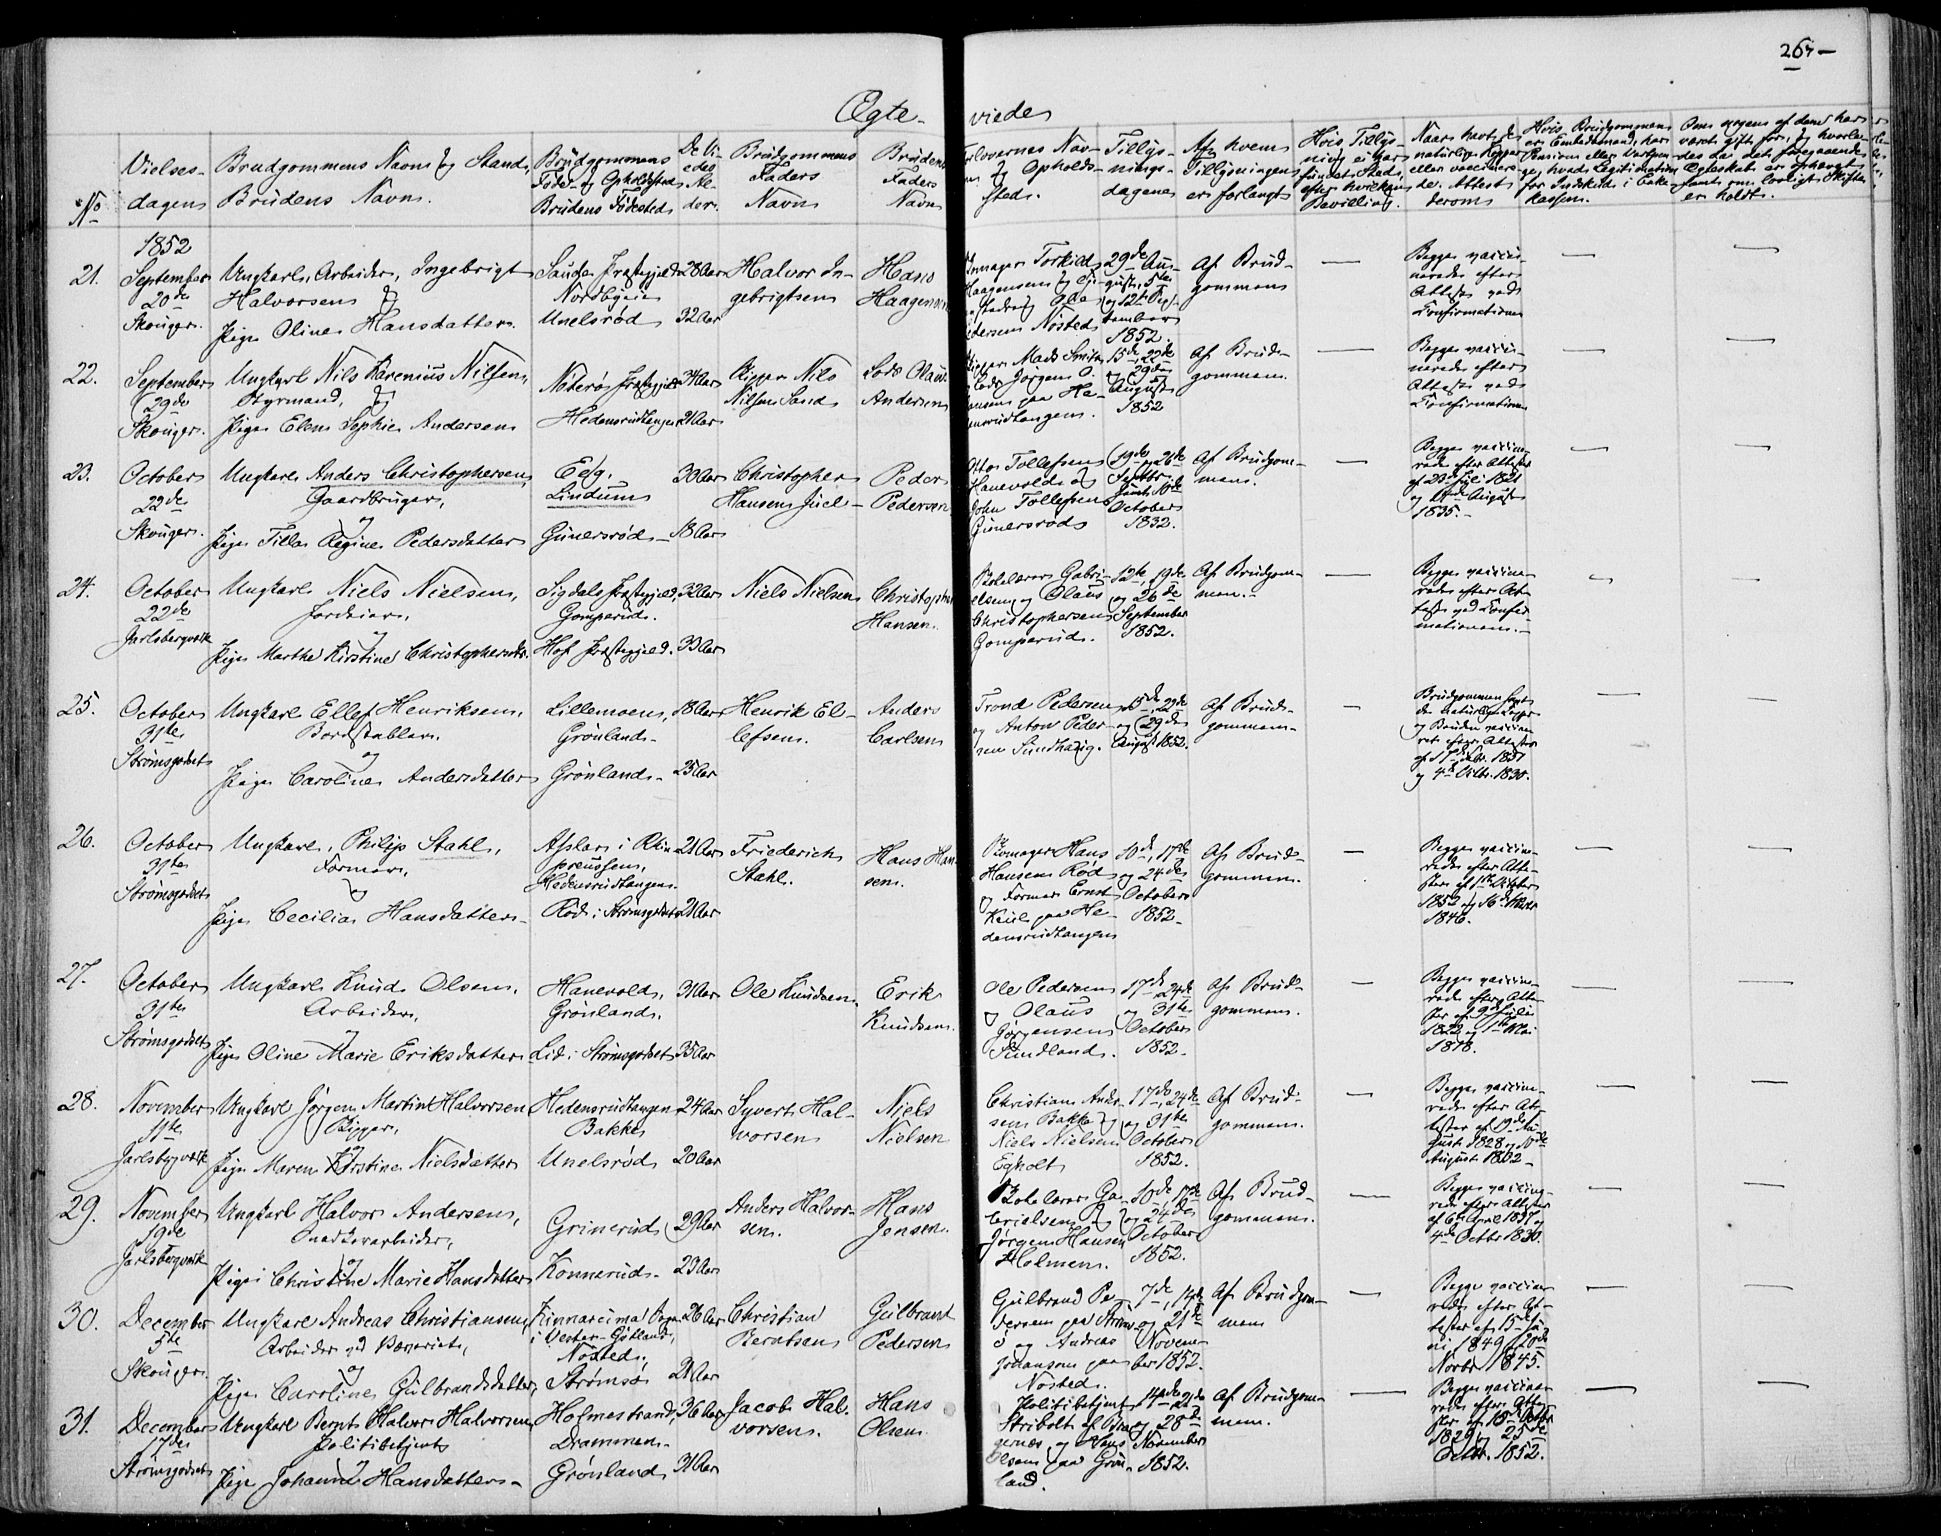 267
Ægteviede
No
Vielses-
dagen
Brudgommens Navn og Stand,
Brudens Navn.
Brudgommens
Føde- og Opholdssted
Brudens Fødested
De Vi-
edes
Al-
der.
Brudgommens
Faders
Navn
Brudens
Faders
Navn
Forlovernes Nav-
n og Opholds-
sted.
Tillys-
nings-
dagene
Af hvem
Tillysningen
er forlangt
Hvis Tillys-
ning ei har
fundet Sted,
efter hvilken
Bevilling.
Naar havt de
naturlige Kopper
eller vaccinere-
de. Attest
derom
Hvis Brudgommen
er Embedsmand, hans
for Indskud i Enke-
kassen.
Om nogen af dem har
været gift før, og hvorle-
des da det foregaaende
Ægteskab er ophævet
samt om lovligt Skifte
er holdt.
1852
21.
September
20de
Skouger.
Ungkarl, Arbeider, Ingebrigt
Halvorsen
og
Pige Oline Hansdatter.
Sande Præstegjeld
Unelsrød
28 Aar
32 Aar
Halvor In-
gebrigtsen
Hans
Haagensen
Torkild
Haagensen og
Pedersen Nøsted
29de Au-
gust, 5te
og 12te Sep-
tember
1852.
Af Brud-
gommen
Begge vacci-
nerede efter
Attest ved
Confirmation
22.
September
29de
Skouger.
Ungkarl Nils Karenius Nilsen,
Styrmand, og
Pige Elen Sophie Andersen
Nøterø Præstegjeld
Hedensrudtangen
34 Aar
21 Aar
Rigger Nils
Nilsen Sand
Lods Olaus
Andersen
Rigger Mads Smith
Lods Jørgen O.
Hansen paa He-
densrudtangen.
15de, 22de
og 29de
August
1852
Af Brud-
gommen.
Begge vacci-
nerede efter
Attest ved
Confirmation
23.
October
22de
Skouger.
Ungkarl Anders Christophersen,
Gaardbruger,
og
Pige Tilla Regine Pedersdatter
Eeg.
Lindum
Gunersrød
30 Aar
18 Aar
Christopher
Hansen Juel
Peder
Pedersen
Tollefsen
Hanevold og
John Tollefsen
Gunersrød
19de og 26de
Septbr.
samt 10de
October
1832.
Af Brudgom-
men.
Begge vaccine-
rede efter Attester
af 20de Juli 1821
og August
1835.
24.
October
22de
Jarlsbergværk
Ungkarl Niels Nielsen,
Jordeier,
og
Pige Marthe Kirstine Christophersdtr.
Sigdals Præstegjeld,
Gomperud.
Hof Præstegjeld.
32 Aar
33 Aar
Niels Nielsen
Christopher
Hansen.
Kirkelærer Gabri-
elsen og Olaus
Christophersen
Gomperud.
12te, 19de
og 26de
September
1852.
Af Brudgom-
men.
Begge vaccine-
rede efter At-
test ved Confir-
mationen.
25.
October
31te
Strømsgodset
Ungkarl Ellef Henriksen,
Bordstabler.
og
Pige Caroline Andersdatter
Lillemoen,
Grønland.
Grønland.
18 Aar
25 Aar
Henrik El-
lefsen.
Anders
Carlsen
Trond Pedersen
og Anton Peder-
sen Sundhaug.
15de, 22de
og 29de
August 1852.
Af Brud-
gommen.
Brudgommen havt
de naturlige Kopper
og Bruden vaccine-
ret efter Attester
af 17de 1837
og 4de Octbr. 1830.
26.
October
31te
Strømsgodset
Ungkarl, Philip Stahl,
Former,
og
Pige Cecilia Hansdatter
Asslar i Rhin-
preussen,
Hedensrudtangen.
Rød i Strømsgodset
21 Aar
21 Aar
Friederich
Stahl.
Hans Han-
sen.
Hans
Hansen Rød
og Former Ernst
Keul paa He-
densrudtangen
10de, 17de
og 24de
October
1852.
Af Brud-
gommen.
Begge vaccine-
rede efter Atte-
ster af 1ste October
1852 og 16de
1846.
27.
October
31te
Strømsgodset
Ungkarl Knud Olsen.
Arbeider,
og
Pige Oline Marie Eriksdatter
Hanevold,
Grønland.
Lid i Strømsgodset
31 Aar
35 Aar
Ole Knudsen
Erik
Knudsen.
Ole Pedersen
og Olaus
Jørgensen
Sundland.
17de, 24de
og 31te
October
1852.
Af Brud-
gommen.
Begge vaccine-
rede efter Atte-
ster af 9de Juli
1822 og 1ste Mai
1818.
28.
November
11te
Jarlsbergværk
Ungkarl Jørgen Martin Halvorsen
Rigger,
og
Pige Maren Kirstine Nielsdatter
Hedensrudtangen
Bakke
Unelsrød
24 Aar
20 Aar
Syvert Hal-
vorsen
Niels
Nielsen
Christian Ander-
sen Bakke og
Niels Nielsen
Egholt
17de, 24de
og 31te
October
1852.
Af Brud-
gommen.
Begge vaccine-
rede efter At-
tester af 19de Au-
gust 1828 og 10de
August 1832
29.
November
19de
Jarlsbergværk
Ungkarl Halvor Andersen,
og
Pige Christine Marie Hansdatter
Grinerud
Konnerud.
29 Aar
23 Aar
Anders Halvor-
sen.
Hans
Jensen.
Kirkelærer Ga-
brielsen og
Jørgen Hansen
Holmen.
10de, 17de
og 24de
October
1852.
Af Brud-
gommen.
Begge vaccine-
rede efter Attester
af 6te April 1837 og
4de Octbr 1830.
30.
December
5te
Skouger.
Ungkarl Andreas Christiansen,
Arbeider ved Bæveriet,
og
Pige Caroline Gulbrandsdatter,
Kinnarema Sogn
i Vester-Götland,
Nøsted,
Strømsø
26 Aar
21 Aar
Christian
Berntsen
Gulbrand
Pedersen
Gulbrand Pe-
dersen paa Strøms-
ø og Andreas
Johansen paa
Nøsted.
7de, 14de
og 21de
Novem-
ber 1852.
Af Brudgom-
men
Begge vaccine-
rede efter At-
tester af 15de Ju-
ni 1849 og 20de
Novbr 1845.
31.
December
17de
Strømsgodset
Ungkarl Bernt Halvor Halvorsen
Politibetjent
og
Pige Johanne Hansdatter
Holmestrand,
Drammen.
Grønland
36 Aar
31 Aar
Jacob Hal-
vorsen.
Hans
Olsen.
Politibetjent
Stribolt af Bra-
gernes, og Hans
Olsen paa Grøn-
land.
14de, 21de
og 28de
November
1852.
Af Brudgom-
men.
Begge vaccine-
rede efter Atte-
ster af 15de Octbr
1829 og 25de
Octbr. 1852.